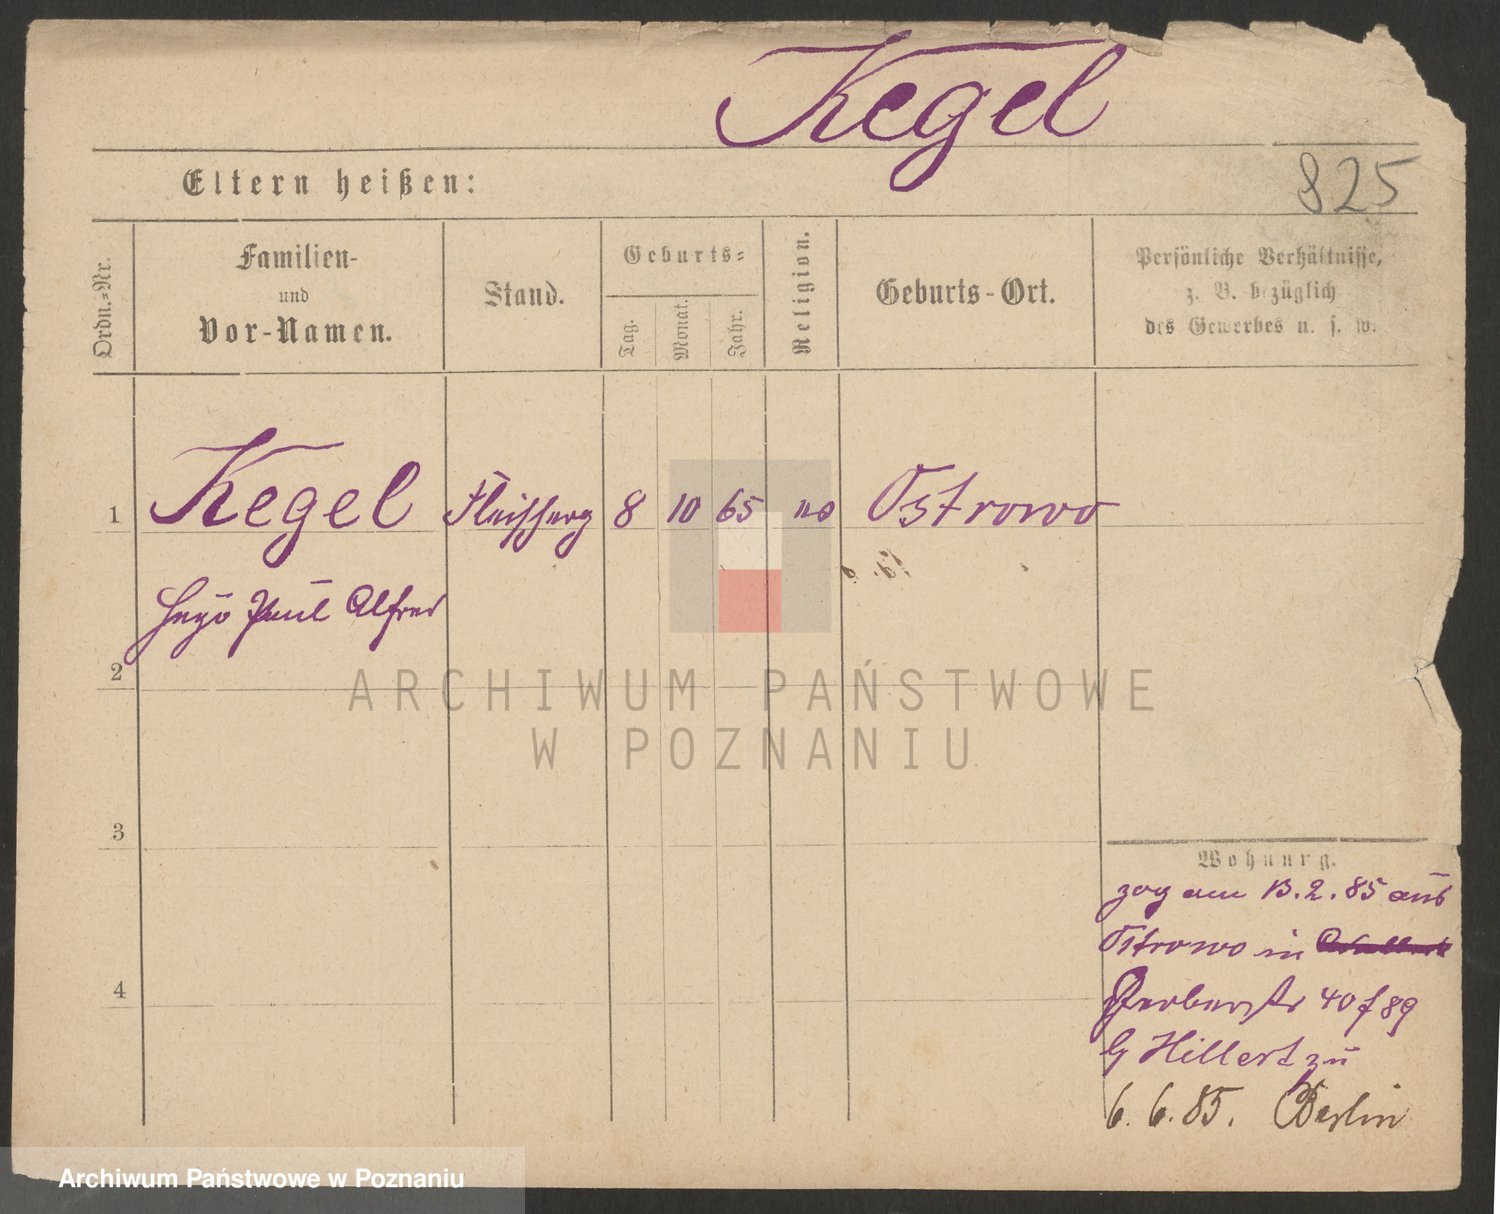 Kegel
Eltern heißen:
825
Ordn.-Nr.
Familien-
und
Vor-Namen.
Stand.
Geburts-
Tag.
Monat.
Jahr.
Religion.
Geburts-Ort.
Persönliche Verhältnisse,
z. B. bezüglich
des Gewerbes u. s. w.
1 Kegel 8 10 65 Ostrowo
Hugo Paul Alfred
2
ARCHIWUM PAŃSTWOWE
W POZNANIU
3
4
Wohnung.
zog am 13.2.85 aus
Ostrowo in
Gerberstr 40 f 89
Hillert zu
6. 6. 85. Berlin
Archiwum Państwowe w Poznaniu